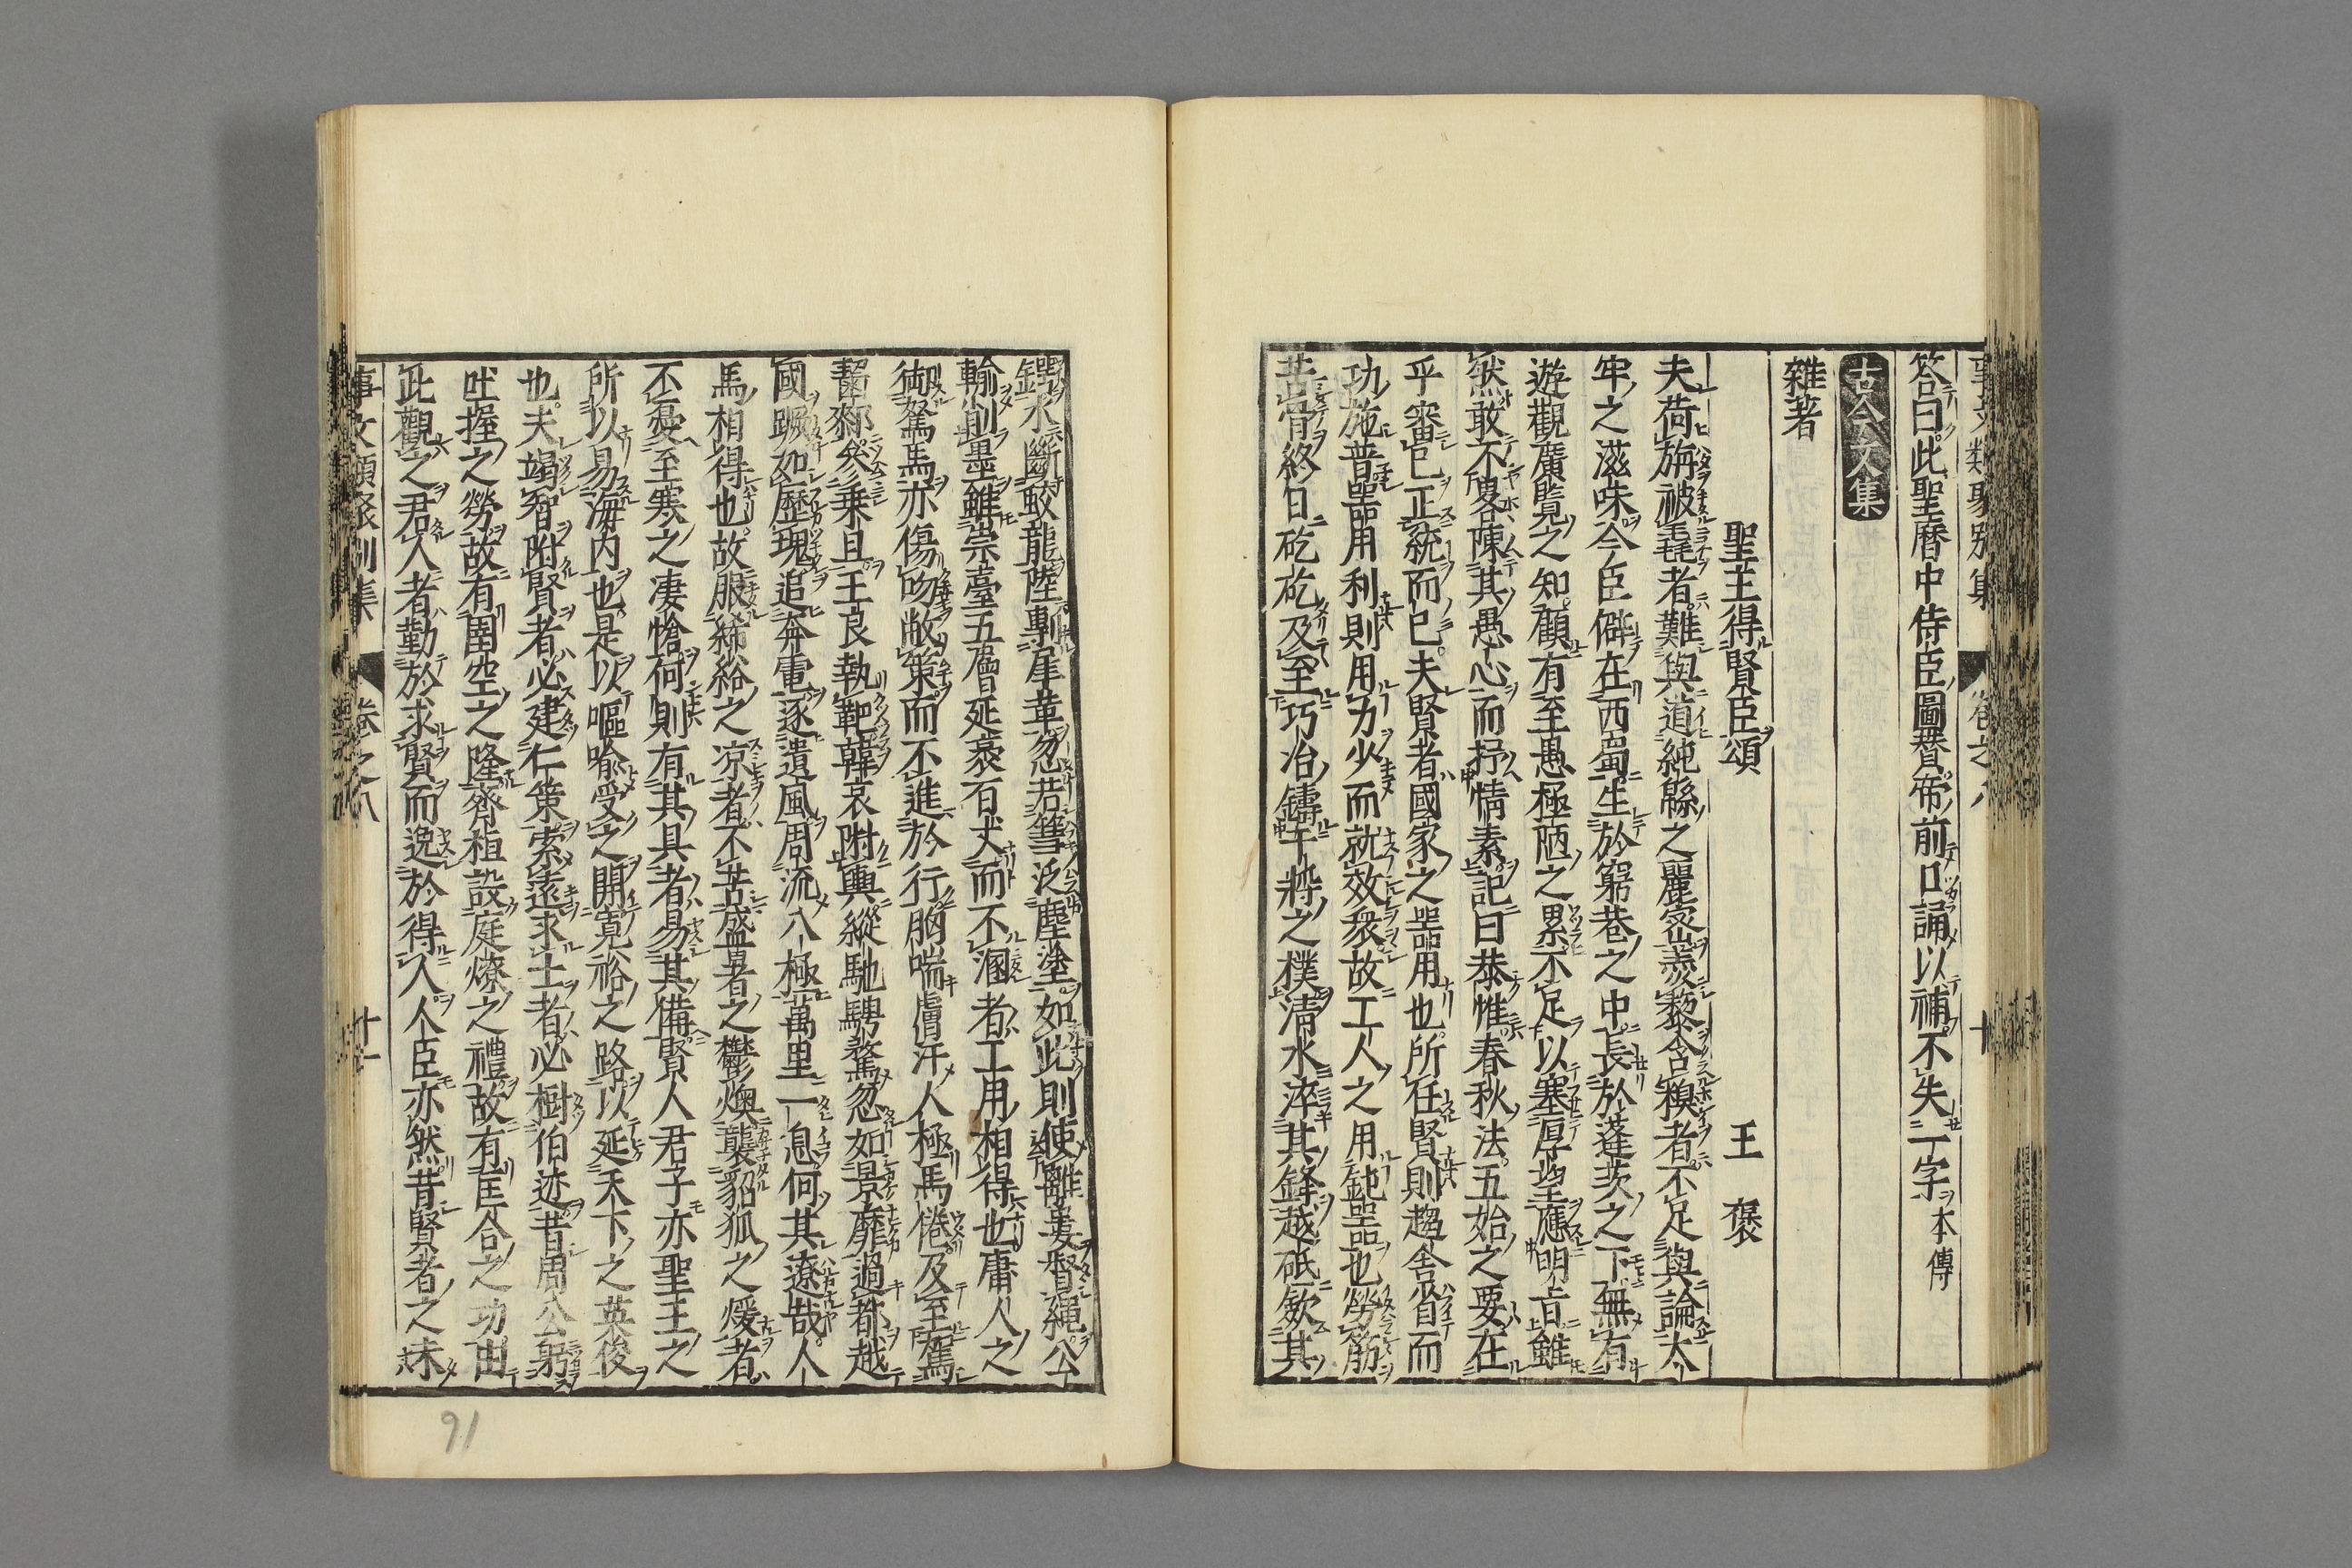 事文類聚別集 卷之八 十
答曰此聖曆中侍臣圖賛帝前口誦以補不失一字本傳
古今文集
雜著
聖主得賢臣頌 王褒
夫荷旃被毳者難與道純緜之麗密羨藜含糗者不足與論太
牢之滋味今臣僻在西蜀生於窮巷之中長於蓬茨之下無有
遊觀廣覽之知顧有至愚極陋之累不足以塞厚望應明旨雖
然敢不畧陳其愚心而抒情素記曰恭惟春秋法五始之要在
乎審已正統而已夫賢者國家之噐用也所任賢則趨舍省而
功施普噐用利則用力少而就效衆故工人之用鈍噐也勞筋
苦骨終日矻矻及至巧冶鑄干將之樸清水淬其鋒越砥歛其
鍔水斷蛟龍陸剸犀革忽若篲泛塵塗如此則使離婁督繩公
輸削墨雖崇臺五層延袤百丈而不溷者工用相得也庸人之
御駑馬亦傷吻敝策而不進於行胸喘膚汗人極馬倦及至駕
齧膝參乗旦王良執靶韓哀附輿縱馳騁鶩忽如景靡過都越
國蹶如歷塊追奔電逐遺風周流八極萬里一息何其遼哉人
馬相得也故服絺綌之凉者不苦盛暑之鬱燠襲貂狐之煖者
不憂至寒之凄愴何則有其具者易其備賢人君子亦聖王之
所以易海内也是以嘔喻受之開寛裕之路以延天下之英俊
也夫竭智附賢者必建仁策索遠求士者必樹伯迹昔周公躬
吐握之勞故有圄空之隆齊桓設庭燎之禮故有匡合之功由
此觀之君人者勤於求賢而逸於得人人臣亦然昔賢者之未
事文類聚別集 卷之八 十一
91